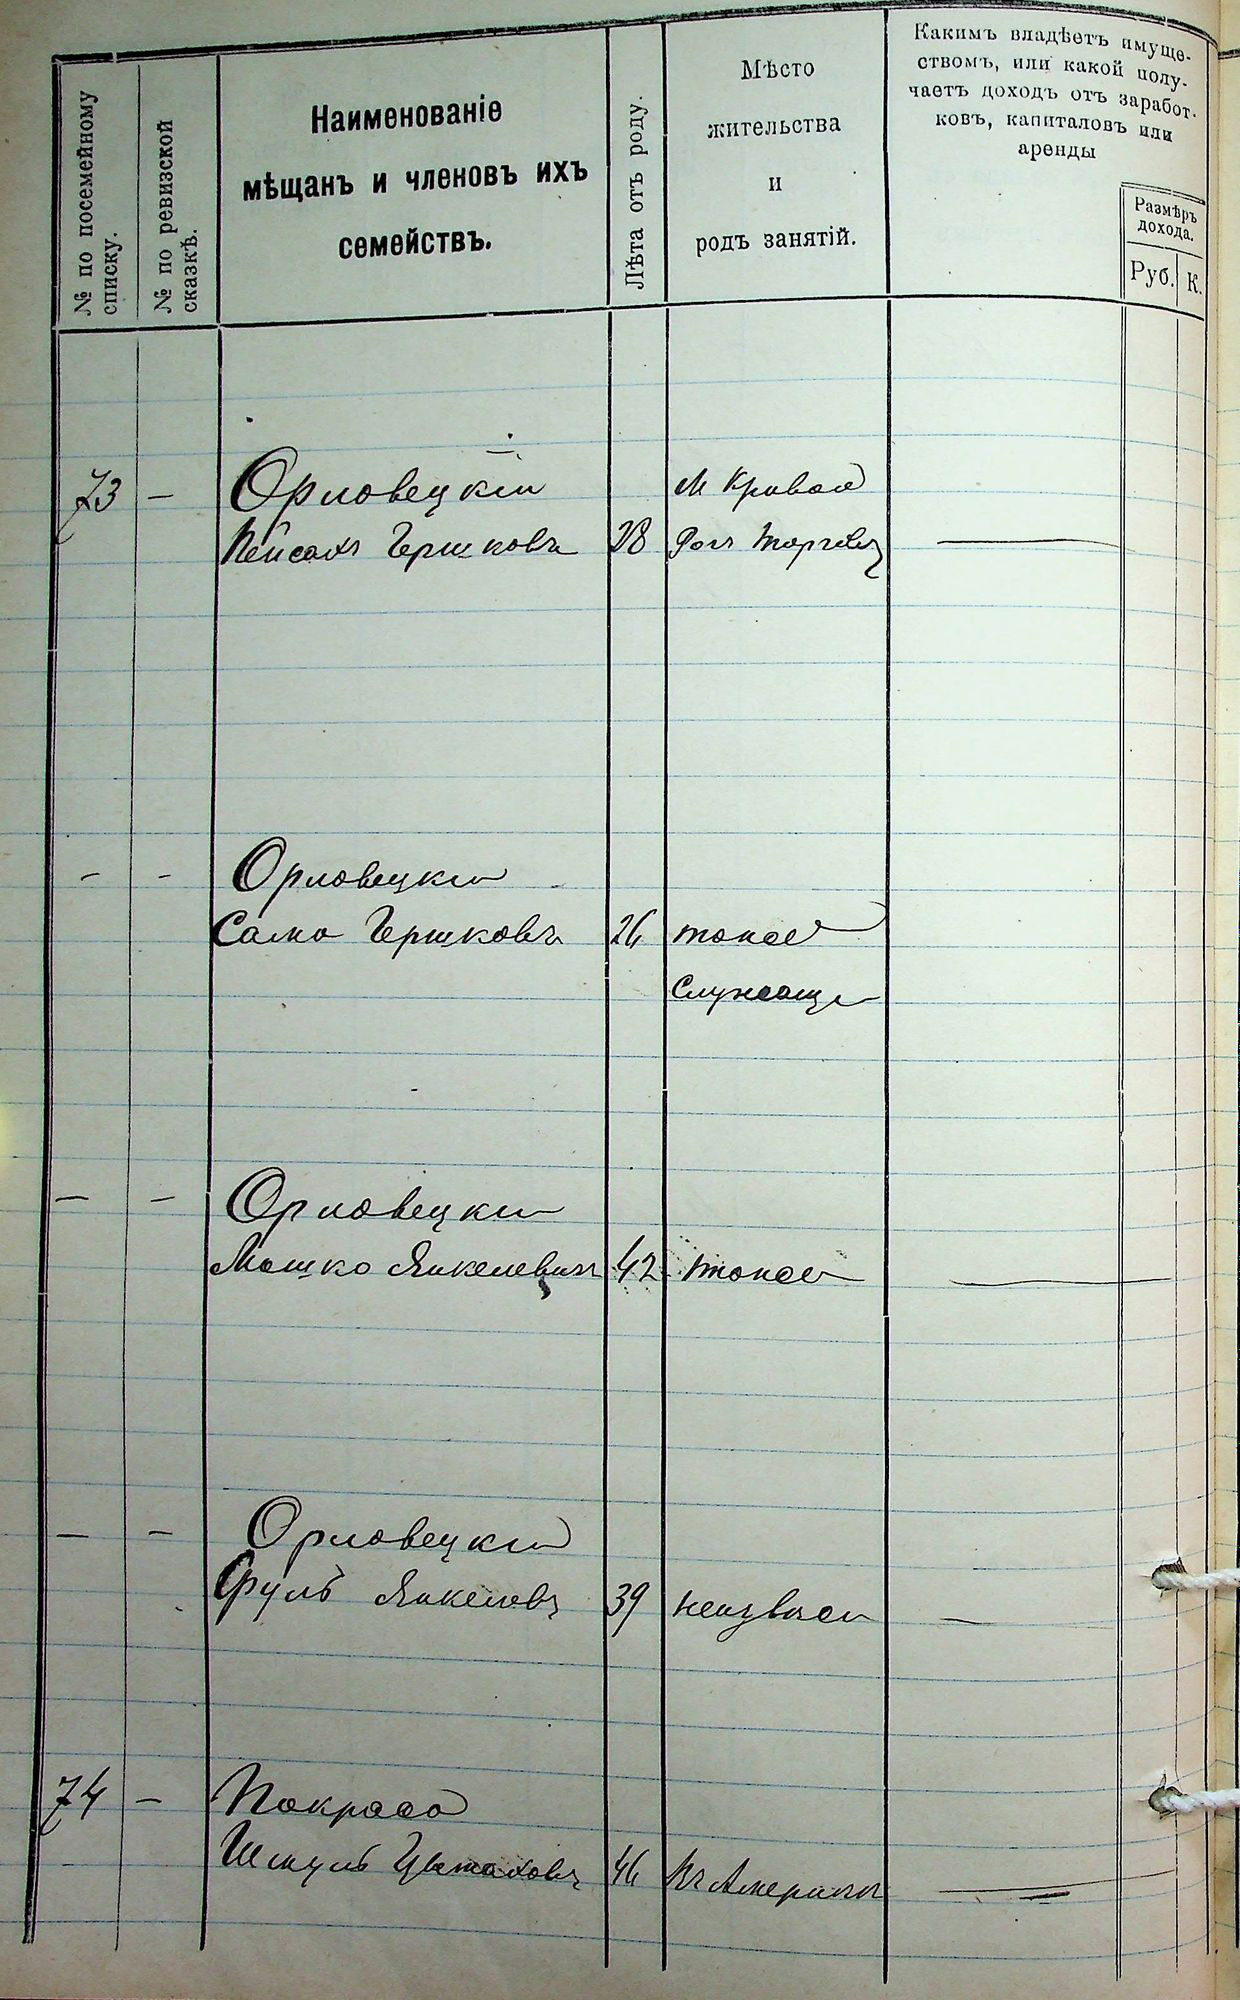 № по посемейному
списку.
№ по ревизской
сказкѣ.
Наименованіе
мѣщанъ и членовъ ихъ
семействъ.
Лѣта отъ роду.
Мѣсто
жительства
и
родъ занятій.
Какимъ владѣетъ имуще-
ствомъ, или какой полу-
чаетъ доходъ отъ заработ-
ковъ, капиталовъ или
аренды
Размѣръ
дохода.
Руб. К.
73 — Орловецкій м Кривой
Пейсахъ Гершковъ 28 Рогъ торговецъ —
- - Орловецкій
Гершковъ 26 тоже
Служащ
— — Орловецкій
Мошко Янкелевичъ 42 тоже —
— — Орловецкій
Сруль Янкелевъ 39 неизвѣс —
74 — Покрасо
Шмуль 46 Въ Америкѣ —